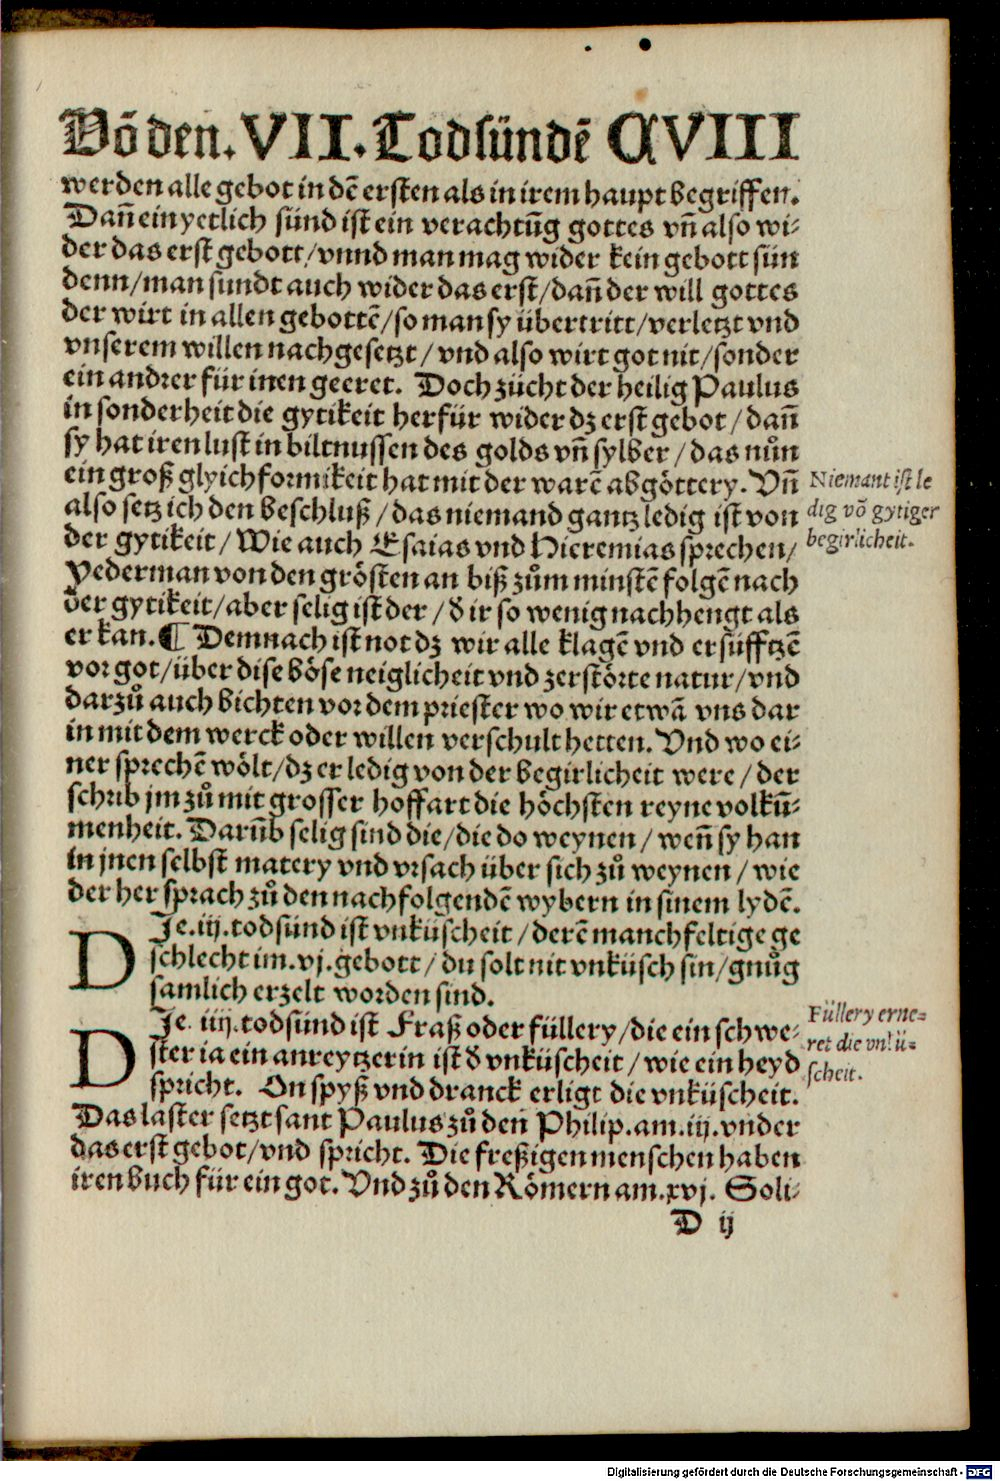 Võ den. VII. Todsündẽ CVIII
werden alle gebot in dẽ ersten als in irem haupt begriffen.
Dañ ein yetlich sünd ist ein verachtũg gottes vñ also wi-
der das erst gebott/vnnd man mag wider kein gebott sün
denn/man sundt auch wider das erst/dañ der will gottes
der wirt in allen gebottẽ/so man sy übertritt/verletzt vnd
vnserem willen nachgesetzt/vnd also wirt got nit/sonder
ein andrer für inen geeret. Doch zücht der heilig Paulus
in sonderheit die gytikeit herfür wider dz erst gebot/dañ
sy hat iren lust in biltnussen des golds vñ sylber/das nůn
ein groß glych formikeit hat mit der warẽ abgöttery. Vñ
Niemant ist le
also setz ich den beschluß/das niemand gantz ledig ist von
dig võ gytiger
der gytikeit/Wie auch Esaias vnd Hieremias sprechen/
begirlicheit.
Yederman von den grösten an biß zům minstẽ folgẽ nach
der gytikeit/aber selig ist der/d ir so wenig nachhengt als
er kan. ¶ Demnach ist not dz wir alle klagẽ vnd ersüfftzẽ
vor got/über dise böse neiglicheit vnd zerstörte natur/vnd
darzů auch bichten vor dem priester wo wir etwã vns dar
in mit dem werck oder willen verschult hetten. Vnd wo ei-
ner sprechẽ wölt/dz er ledig von der begirlicheit were/der
schrib jm zů mit grosser hoffart die höchsten reyne volkũ-
menheit. Darũb selig sind die/die do weynen/weñ sy han
in jnen selbst matery vnd vrsach über sich zů weynen/wie
der her sprach zů den nachfolgendẽ wybern in sinem lydẽ.
DJe .iij. todsünd ist vnküscheit/derẽ manchfeltige ge
schlecht im .vj. gebott/du solt nit vnküsch sin/gnůg
samlich erzelt worden sind.
DJe .iiij. todsünd ist Fraß oder füllery/die ein schwe-
Füllery erne-
ster ia ein anreytzerin ist d vnküscheit/wie ein heyd
ret die vnkü-
spricht. On spyß vnd dranck erligt die vnküscheit.
scheit.
Das laster setzt sant Paulus zů den Philip. am .iij. vnder
das erst gebot/vnd spricht. Die freßigen menschen haben
iren buch für ein got. Vnd zů den Römern am .xvj. Soli-
D ij
Digitalisierung gefördert durch die Deutsche Forschungsgemeinschaft - DFG